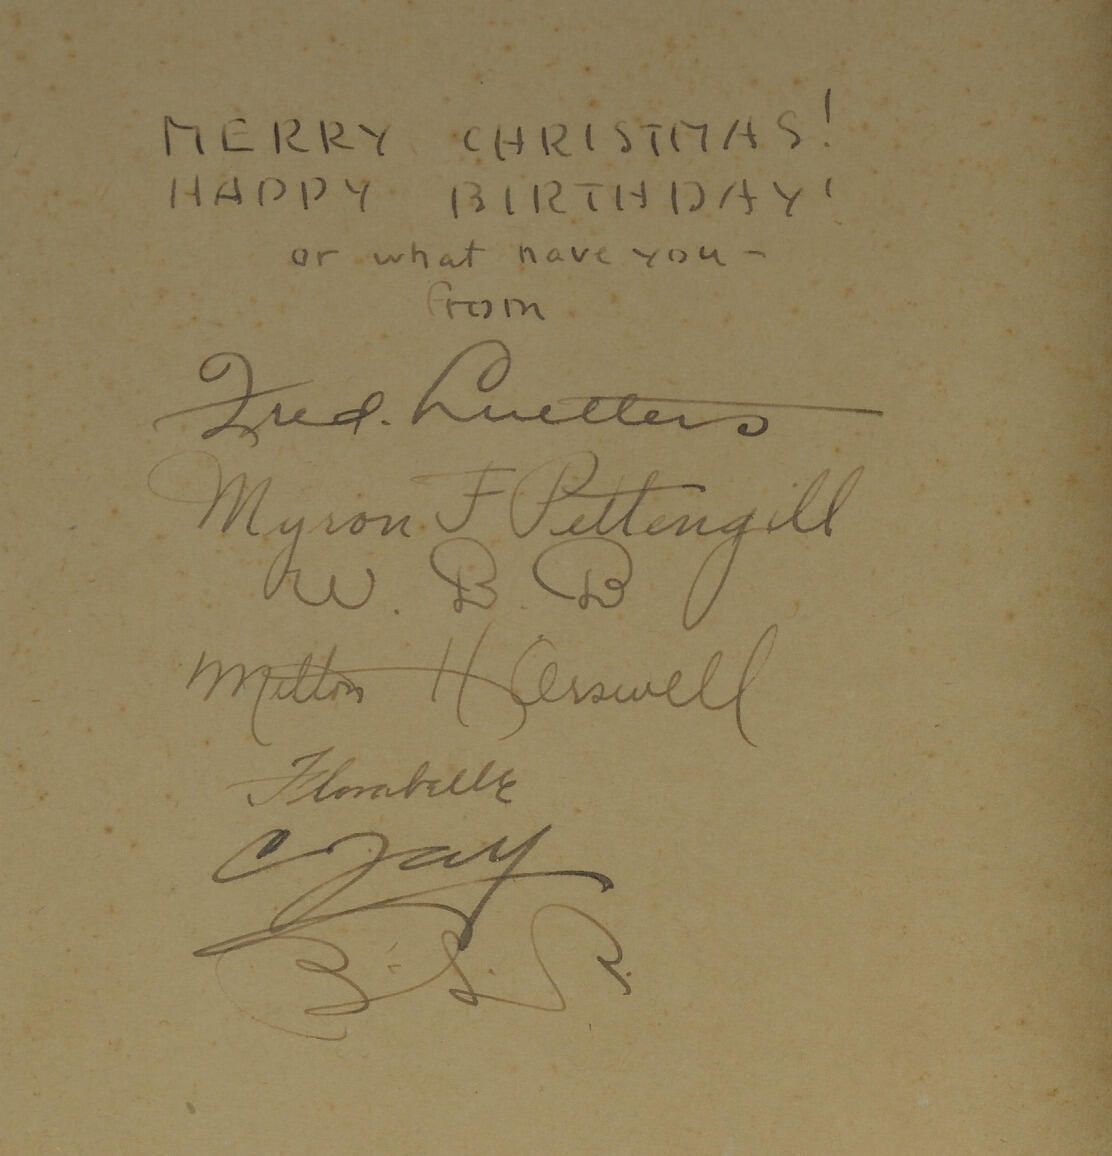 MERRY CHRISTMAS!
HAPPY BIRTHDAY!
or what have you -
from
Fred. Luetters
Myron F Pettengill
W. B. B
Milton H Carswell
Florabelle
C Jay
B. S. R.